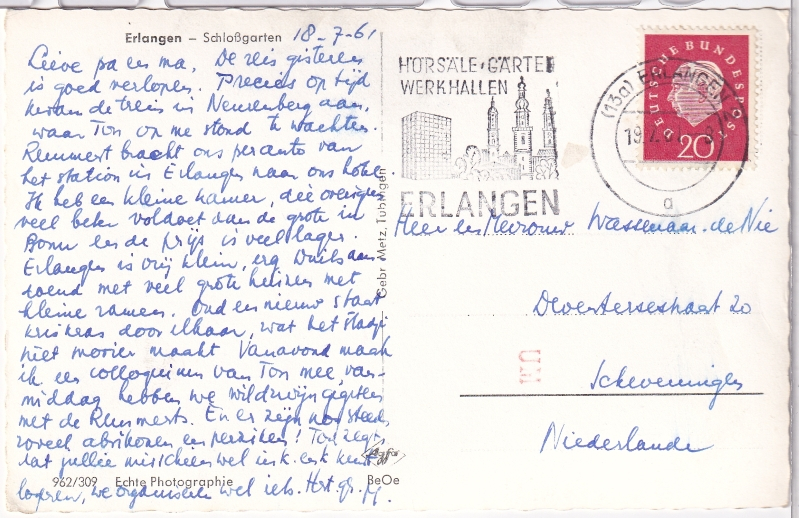 Erlangen – Schloßgarten 18-7-61
Lieve pa en ma, De reis gisteren
is goed verlopen. Precies op tijd
kwam de trein in Neurenberg aan,
waar Ton op me stond te wachten.
Remmert bracht ons per auto van
het station in Erlangen naar ons hotel.
Ik heb een kleine kamer, die overigens
veel beter voldoet dan de grote in
Bonn en de prijs is veel lager.
Erlangen is vrij klein, erg Duits aan-
doend met veel grote huizen met
kleine ramen. Oud en nieuw staat
kriskras door elkaar, wat het stadje
niet mooier maakt. Vanavond maak
ik een colloquium van Ton mee, van-
middag hebben we wildzwijn gegeten
met de Remmerts. En er zijn nog steeds
zoveel abrikozen en perziken! Ton zegt
dat jullie misschien wel
lopen, we organiseren wel iets. Hrt. gr.
962/309 Echte Photographie BeOe
Gebr. Metz, Tübingen
HÖRSÄLE · GÄRTEN
WERKHALLEN
ERLANGEN
(13a) ERLANGEN
19.7.61
a
DEUTSCHE BUNDESPOST
20
Heer en Mevrouw Wassenaar-de Nie
Deventersestraat 20
Scheveningen
Niederlande